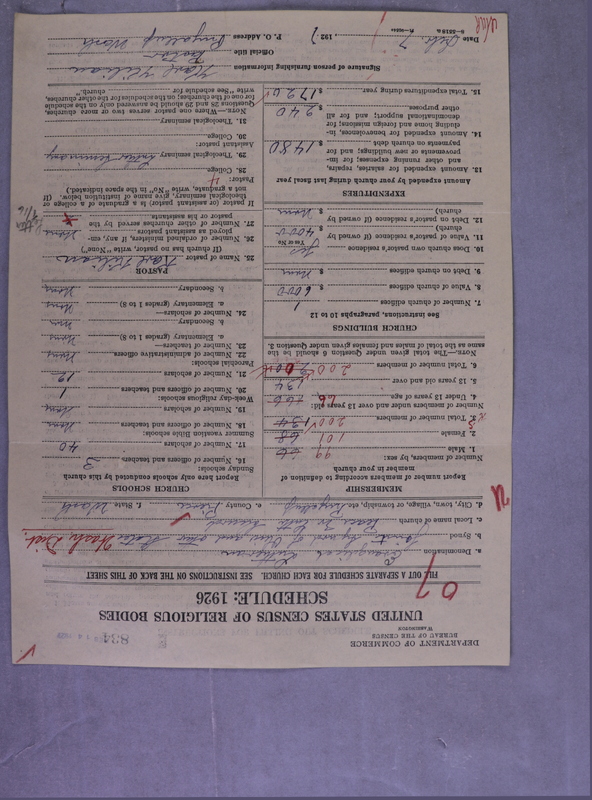 DEPARTMENT OF COMMERCE
BUREAU OF THE CENSUS
WASHINGTON
834
UNITED STATES CENSUS OF RELIGIOUS BODIES
SCHEDULE: 1926
FILL OUT A SEPARATE SCHEDULE FOR EACH CHURCH. SEE INSTRUCTIONS ON THE BACK OF THIS SHEET
a. Denomination Evangelical Lutheran
b. Synod Joint Synod of Ohio and other States Wash. Dist.
c. Local name of church Peace Ev. Luth. Church
d. City, town, village, or township, etc. Puyallup e. County Pierce f. State Wash
MEMBERSHIP
Report number of members according to definition of member in your church
Number of members, by sex:
1. Male 99
2. Female 101
3. Total number of members 200
Number of members under and over 13 years old:
4. Under 13 years of age 66
5. 13 years old and over 134
6. Total number of members 200
NOTE.—The total given under Question 6 should be the same as the total of males and females given under Question 3.
CHURCH BUILDINGS
See instructions, paragraphs 10 to 12
7. Number of church edifices 1
8. Value of church edifices $ 6000
9. Debt on church edifices $ None
10. Does church own pastor's residence Yes
(Yes or No)
11. Value of pastor's residence (if owned by church) $ 4000
12. Debt on pastor's residence (if owned by church) $ None
EXPENDITURES
Amount expended by your church during last fiscal year
13. Amount expended for salaries, repairs, and other running expenses; for improvements or new buildings; and for payments on church debt $ 1480
14. Amount expended for benevolences, including home and foreign missions; for denominational support; and for all other purposes $ 240
15. Total expenditures during year $ 1720
CHURCH SCHOOLS
Report here only schools conducted by this church
Sunday schools:
16. Number of officers and teachers 3
17. Number of scholars 40
Summer vacation Bible schools:
18. Number of officers and teachers None
19. Number of scholars None
Week-day religious schools:
20. Number of officers and teachers 1
21. Number of scholars 12
Parochial schools:
22. Number of administrative officers None
23. Number of teachers—
a. Elementary (grades 1 to 8) None
b. Secondary
24. Number of scholars—
a. Elementary (grades 1 to 8) None
b. Secondary None
PASTOR
25. Name of pastor Karl Kilian
(If church has no pastor, write "None")
26. Number of ordained ministers, if any, employed as assistant pastors None
27. Number of other churches served by the pastor or his assistants
If pastor (or assistant pastor) is a graduate of a college or theological seminary, give name of institution below. (If not a graduate, write "No" in the space indicated.)
Pastor:
28. College
29. Theological seminary Luther Seminary
Assistant pastor:
30. College
31. Theological seminary
NOTE.—Where one pastor serves two or more churches, Questions 25 and 29 should be answered only on the schedule for one of the churches; on the schedules for the other churches, write "See schedule for church."
Signature of person furnishing information Karl Kilian
Official title Pastor
P. O. Address Puyallup Wash
Date Feb. 7, 1927